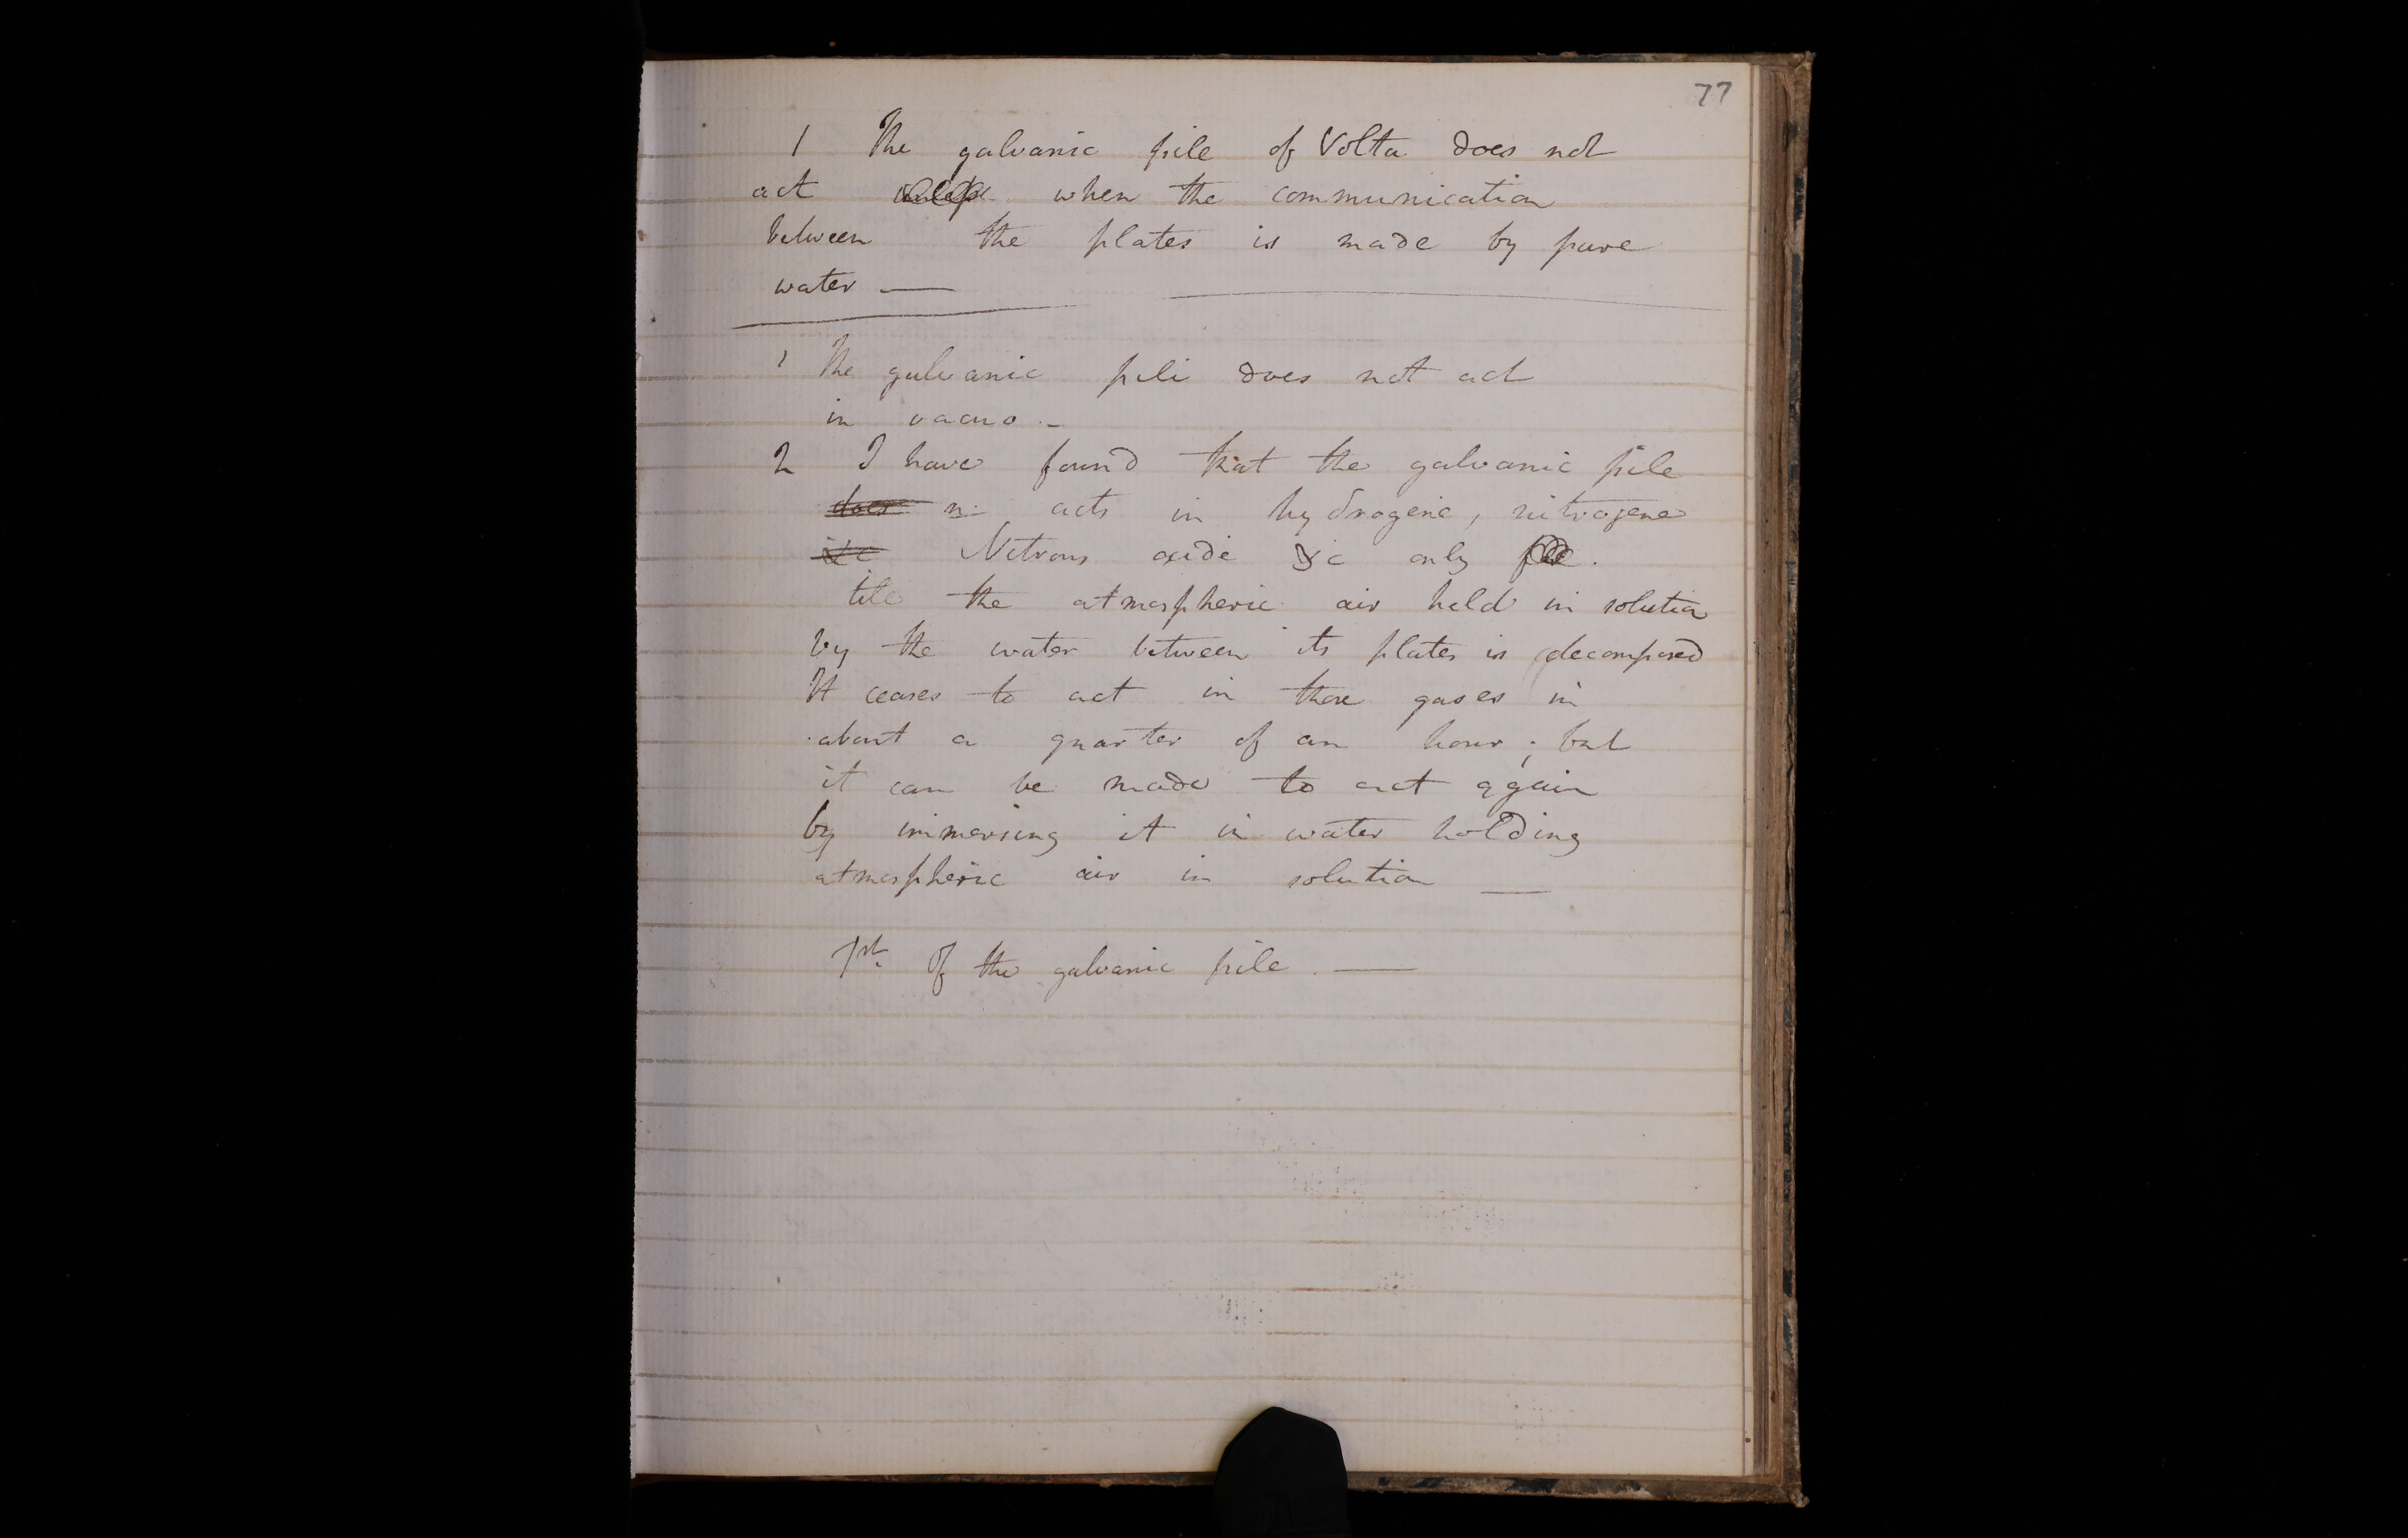 77
1 The galvanic pile of Volta does not
act unless when the communication
between the plates is made by pure
water —
1 The galvanic pile does not act
in vacuo. -
2 I have found that the galvanic pile
does n. acts in hydrogene, nitrogene
&c Nitrous oxide &c only
till the atmospheric air held in solution
by the water between its plates is decomposed
It ceases to act in these gases in
about a quarter of an hour; but
it can be made to act again
by immersing it in water holding
atmospheric air in solution —
1st. Of the galvanic pile. —